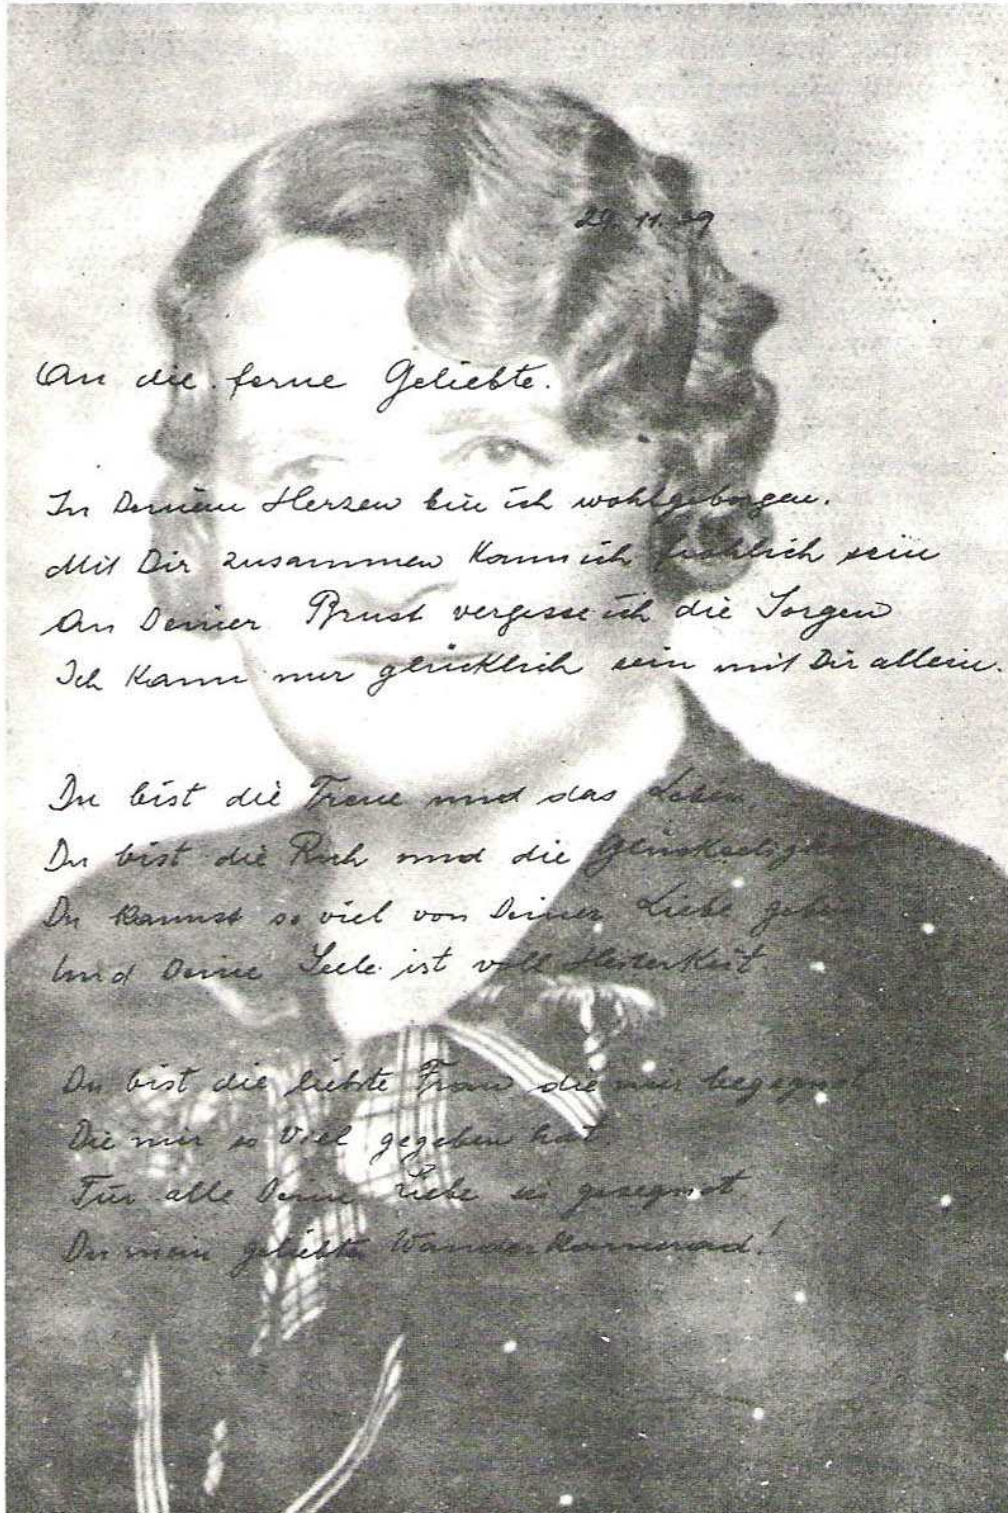 29. 11. 39
An die ferne Geliebte.
In Deinem Herzen bin ich wohlgeborgen.
Mit Dir zusammen kann ich fröhlich sein
An Deiner Brust vergesse ich die Sorgen
Ich kann nur glücklich sein mit Dir allein.
Du bist die Treue und das Leben
Du bist die Ruh und die Glückseligkeit
Du kannst so viel von Deiner Liebe geben
Und Deine Seele ist voll Heiterkeit.
Du bist die liebste Frau die mir begegnet
Die mir so viel gegeben hat
Für alle Deine Liebe sei gesegnet
Du mein geliebter Wanderkamerad!